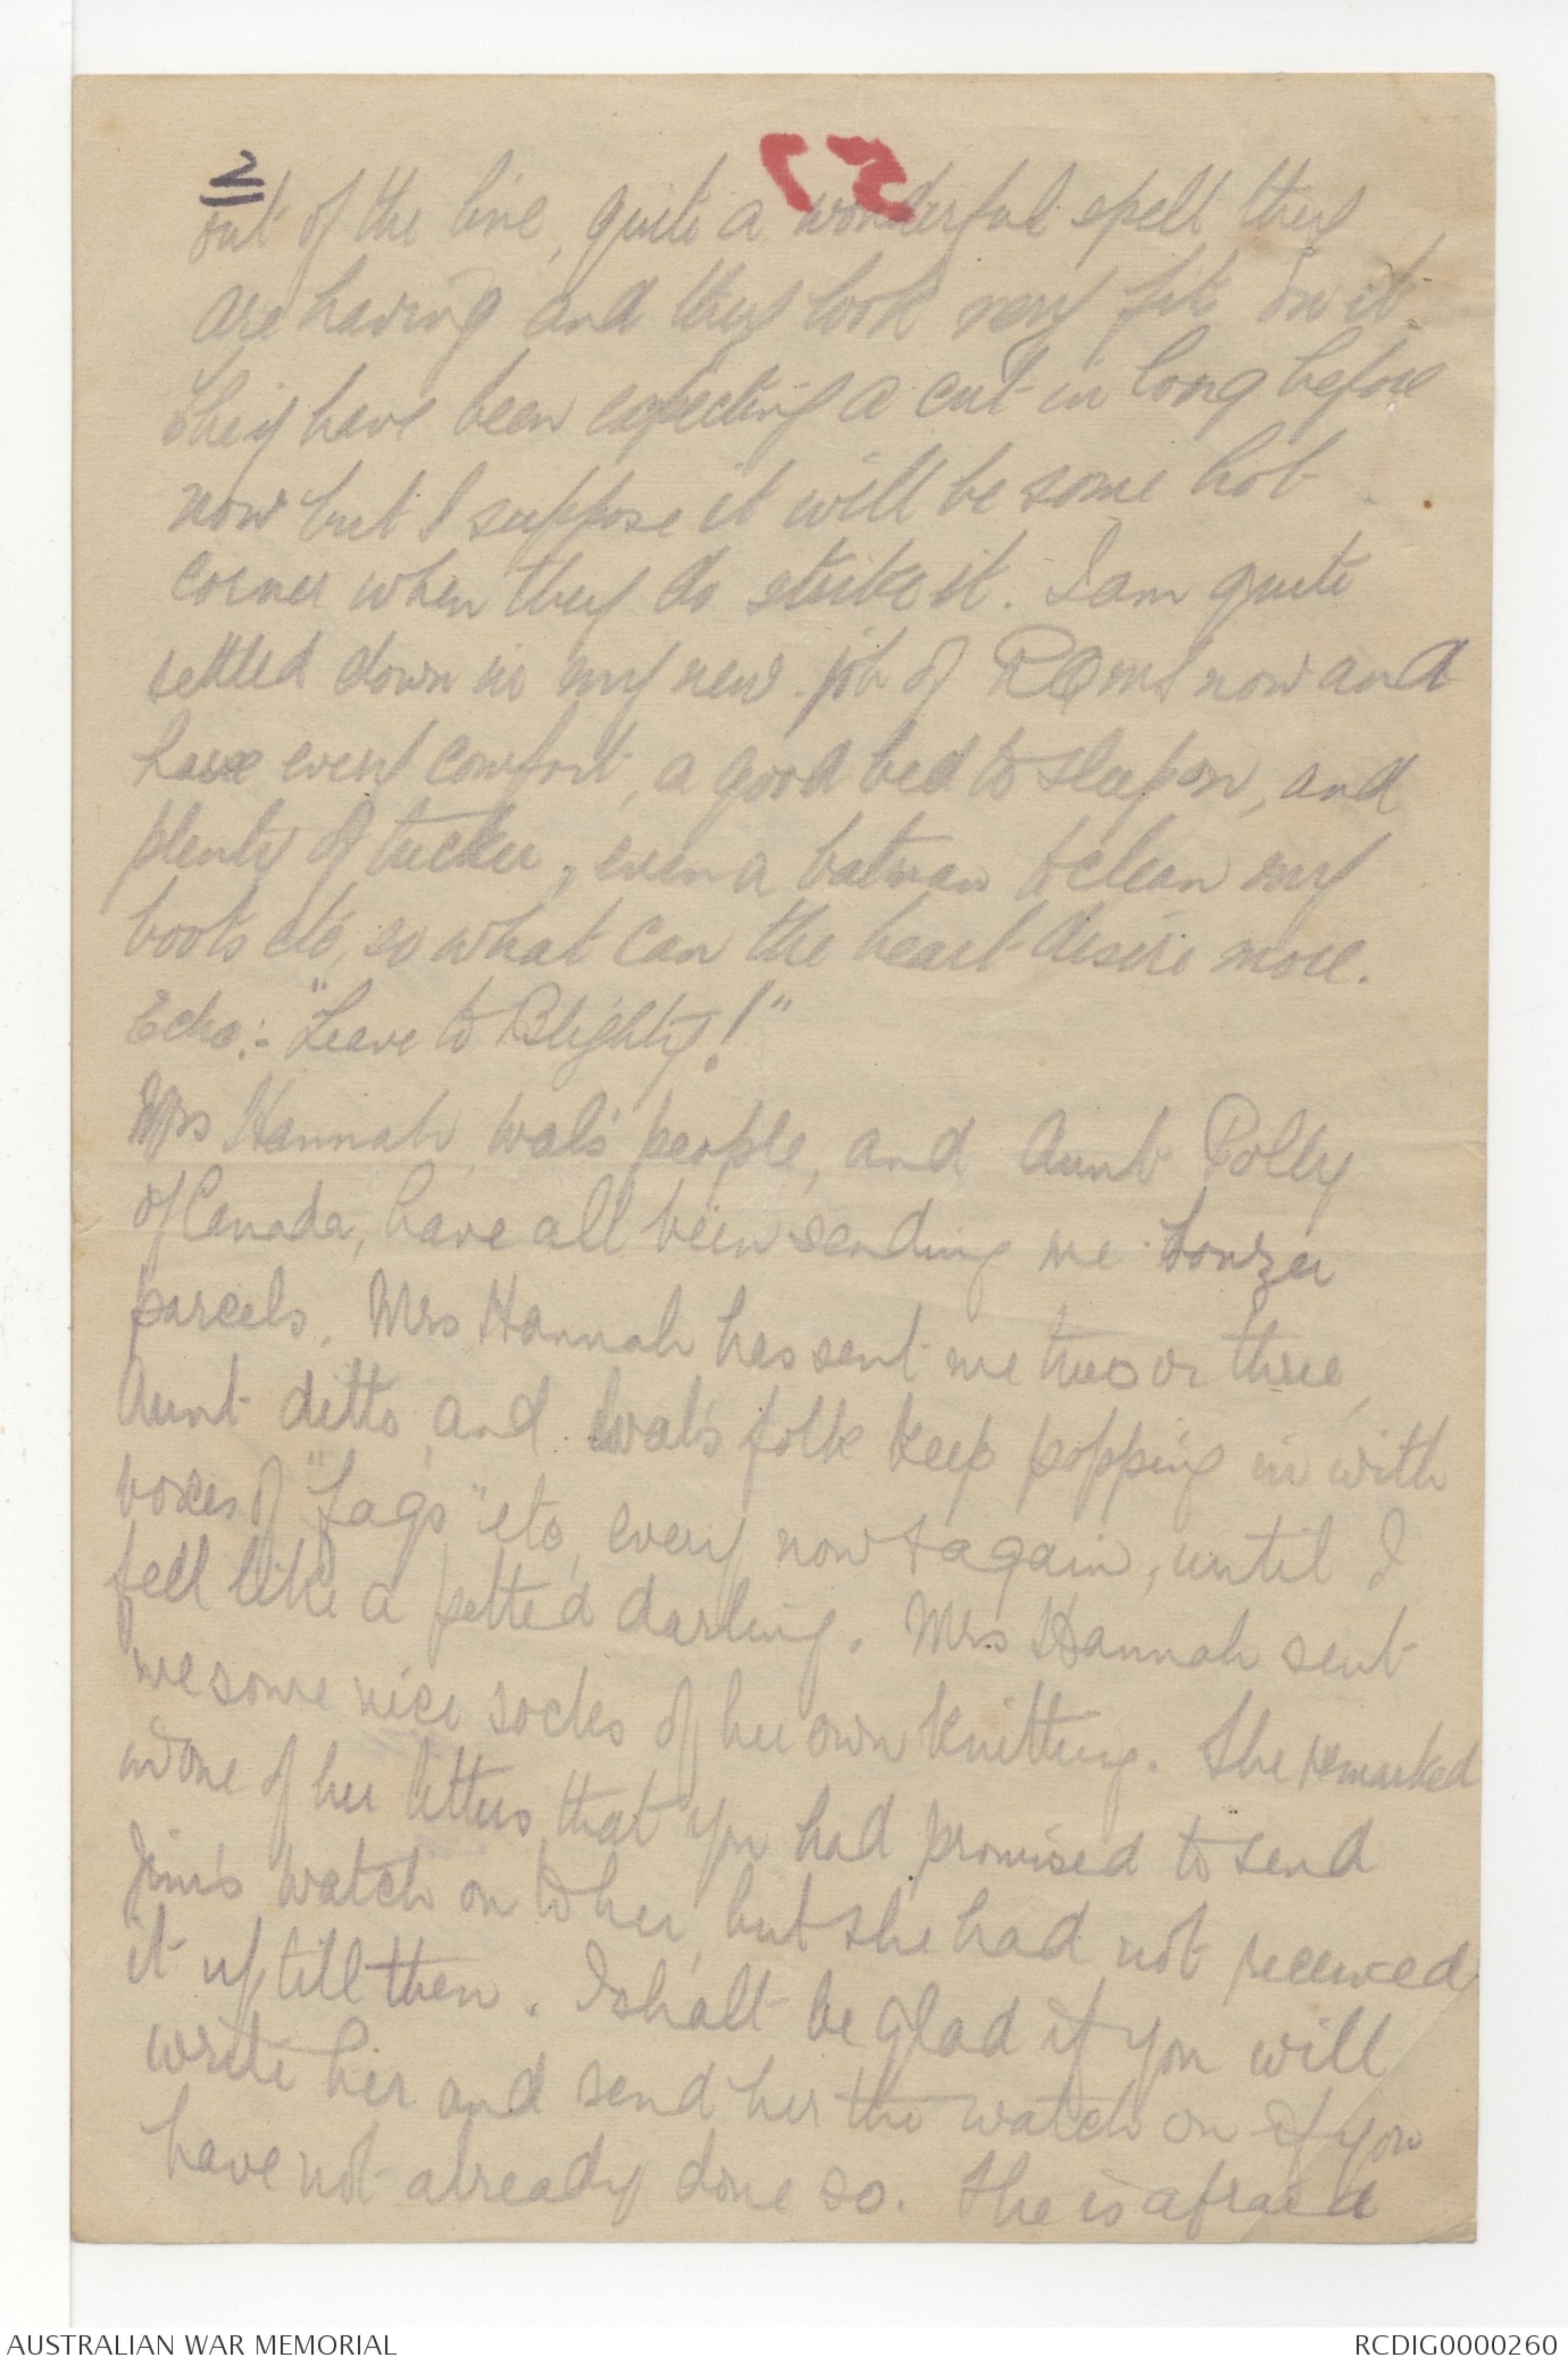 2
out of the line, quite a wonderful spell they
are having and they look very fit on it.
They have been expecting a cut in long before
now but I suppose it will be some hot
corner when they do strike it. I am quite
settled down in my new job of RQMS now and
have every comfort, a good bed to sleep on, and
plenty of tucker, even a batman to clean my
boots etc, so what can the heart desire more.
Echo:- "Leave to Blighty!"
Mrs Hannah, Wal's people, and Aunt Polly
of Canada, have all been sending me bonzer
parcels. Mrs Hannah has sent me two or three,
Aunt ditto, and Wal's folk keep popping in with
boxes of "fags" etc, every now & again, until I
feel like a petted darling. Mrs Hannah sent
me some nice socks of her own knitting. She remarked
in one of her letters, that you had promised to send
Jim's watch on to her, but she had not received
it up till then. I shall be glad if you will
write her and send her the watch on if you
have not already done so. She is afraid
AUSTRALIAN WAR MEMORIAL
RCDIG0000260